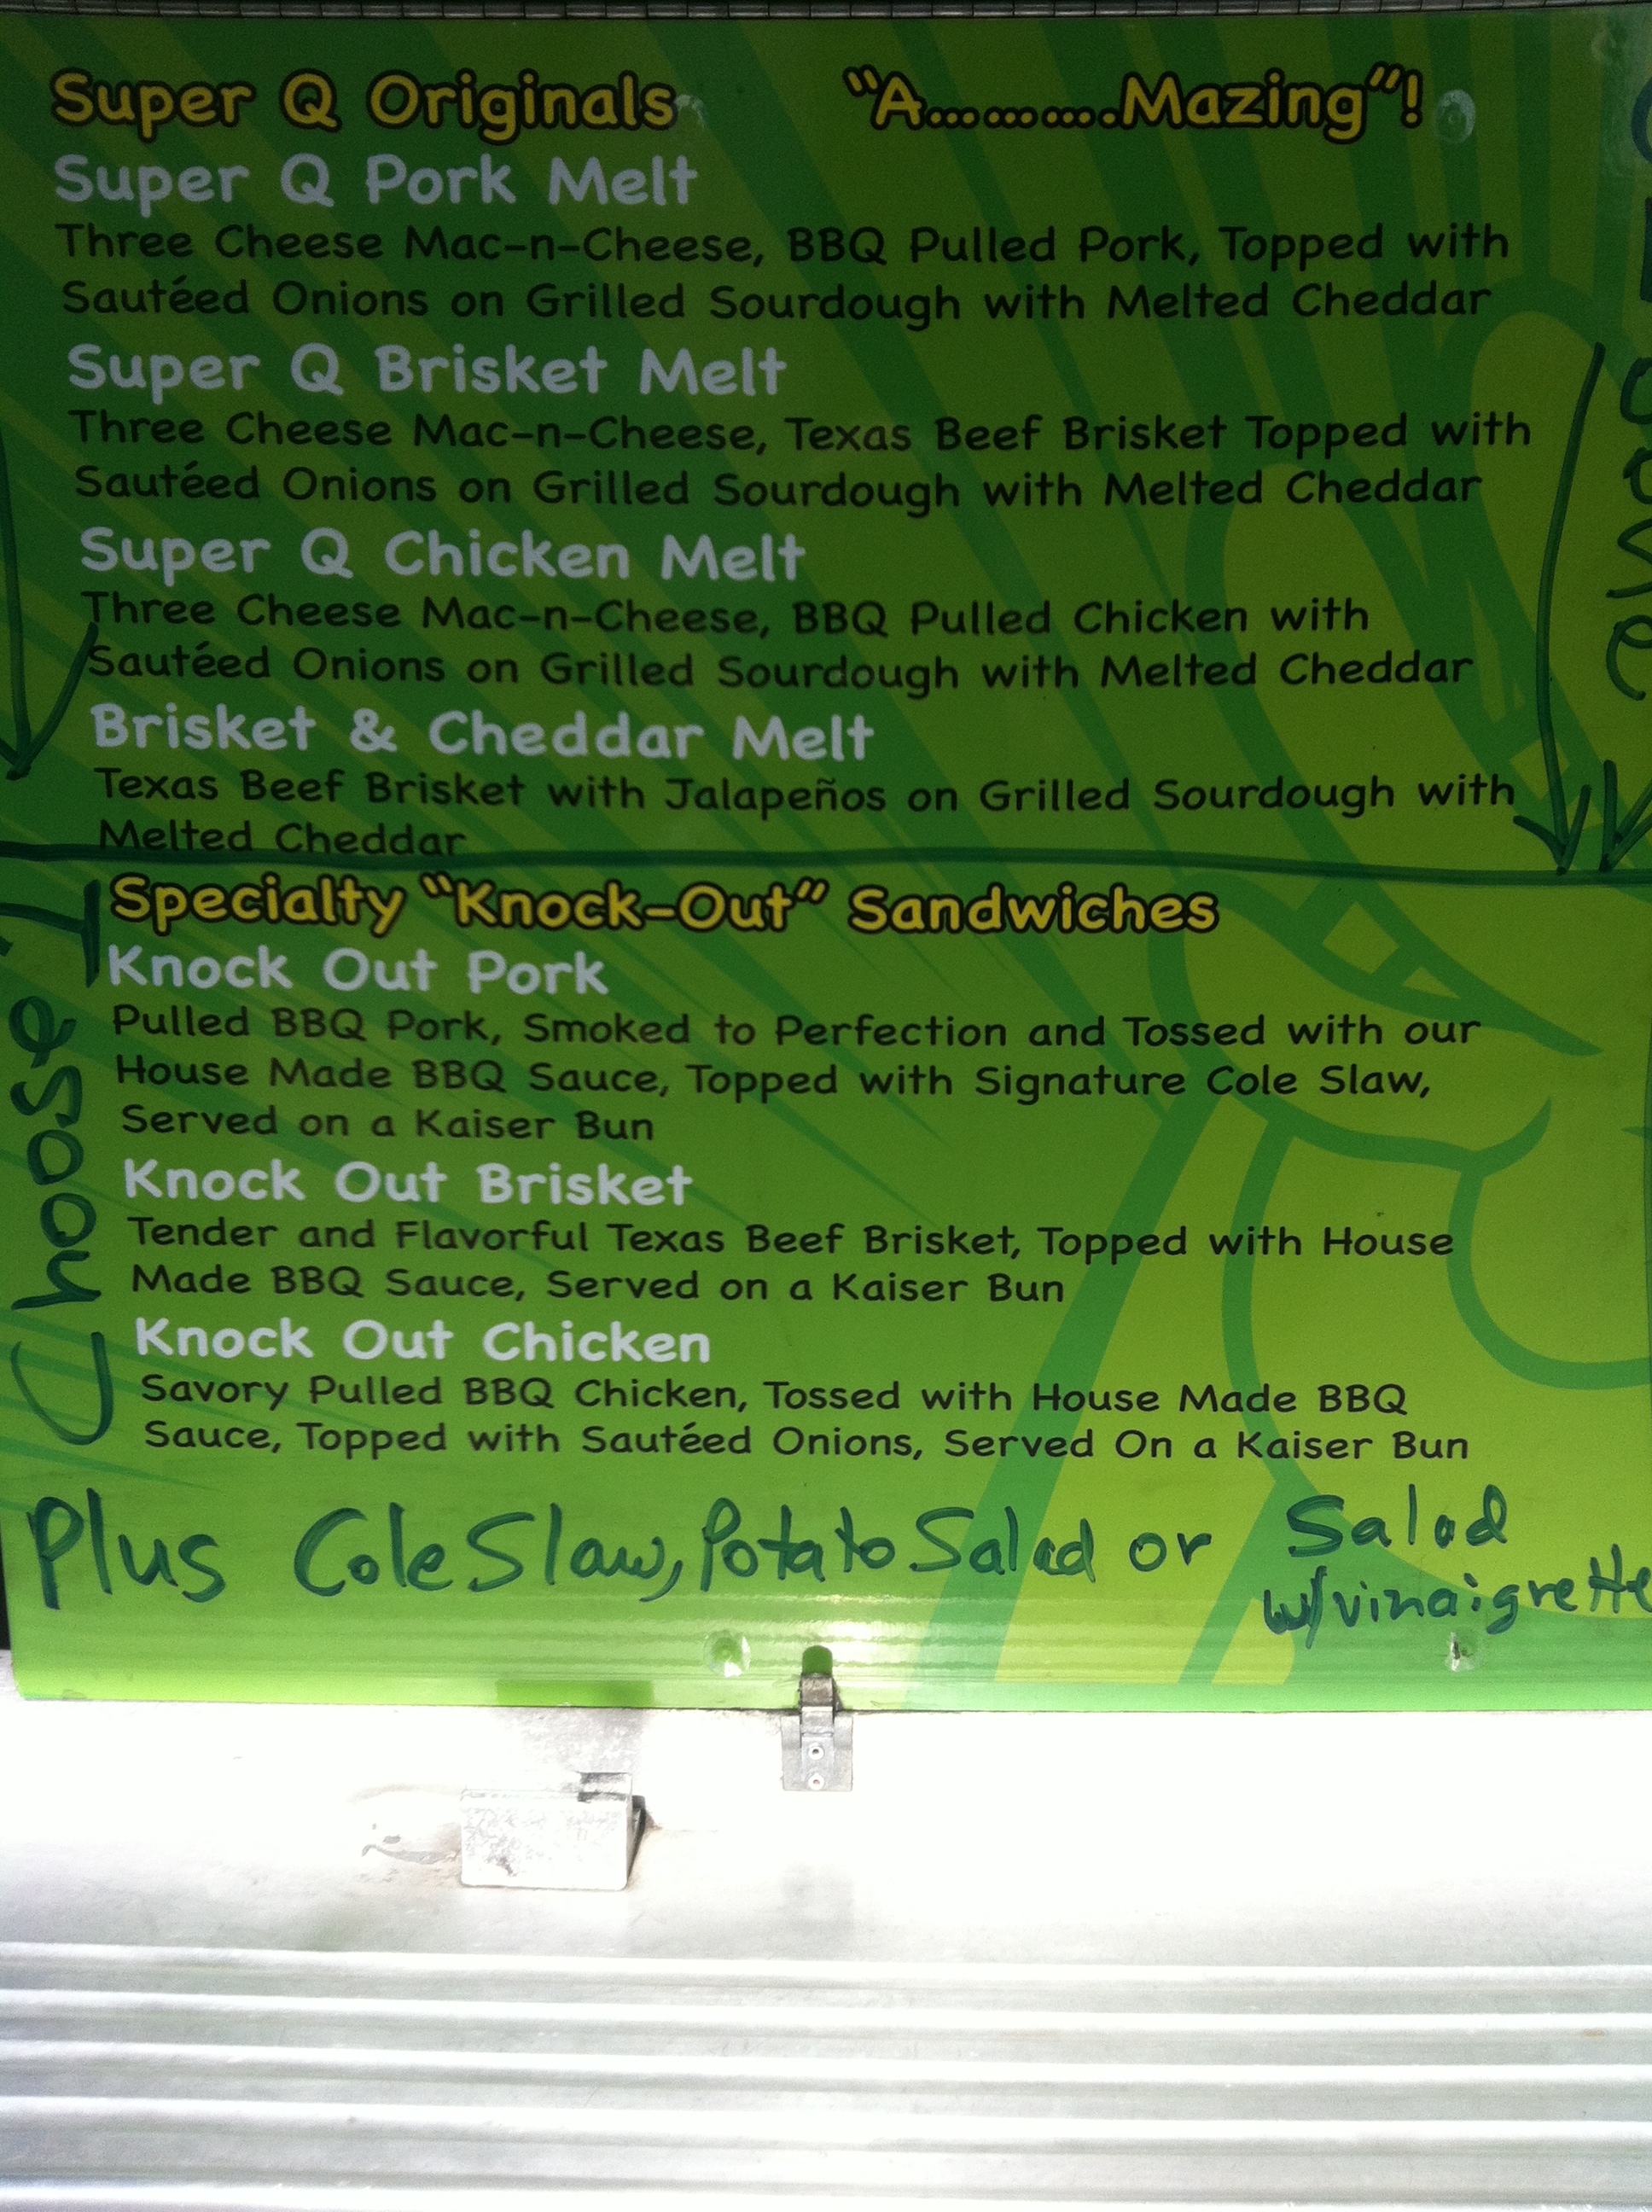 Super Q Originals "A..........Mazing"!
Super Q Pork Melt
Three Cheese Mac-n-Cheese, BBQ Pulled Pork, Topped with
Sautéed Onions on Grilled Sourdough with Melted Cheddar
Super Q Brisket Melt
Three Cheese Mac-n-Cheese, Texas Beef Brisket Topped with
Sautéed Onions on Grilled Sourdough with Melted Cheddar
Super Q Chicken Melt
Three Cheese Mac-n-Cheese, BBQ Pulled Chicken with
Sautéed Onions on Grilled Sourdough with Melted Cheddar
Brisket & Cheddar Melt
Texas Beef Brisket with Jalapeños on Grilled Sourdough with
Melted Cheddar
Specialty "Knock-Out" Sandwiches
Knock Out Pork
Pulled BBQ Pork, Smoked to Perfection and Tossed with our
House Made BBQ Sauce, Topped with Signature Cole Slaw,
Served on a Kaiser Bun
Knock Out Brisket
Tender and Flavorful Texas Beef Brisket, Topped with House
Made BBQ Sauce, Served on a Kaiser Bun
Knock Out Chicken
Savory Pulled BBQ Chicken, Tossed with House Made BBQ
Sauce, Topped with Sautéed Onions, Served On a Kaiser Bun
Choose 1
Plus Cole Slaw, Potato Salad or Salad
w/vinaigrette